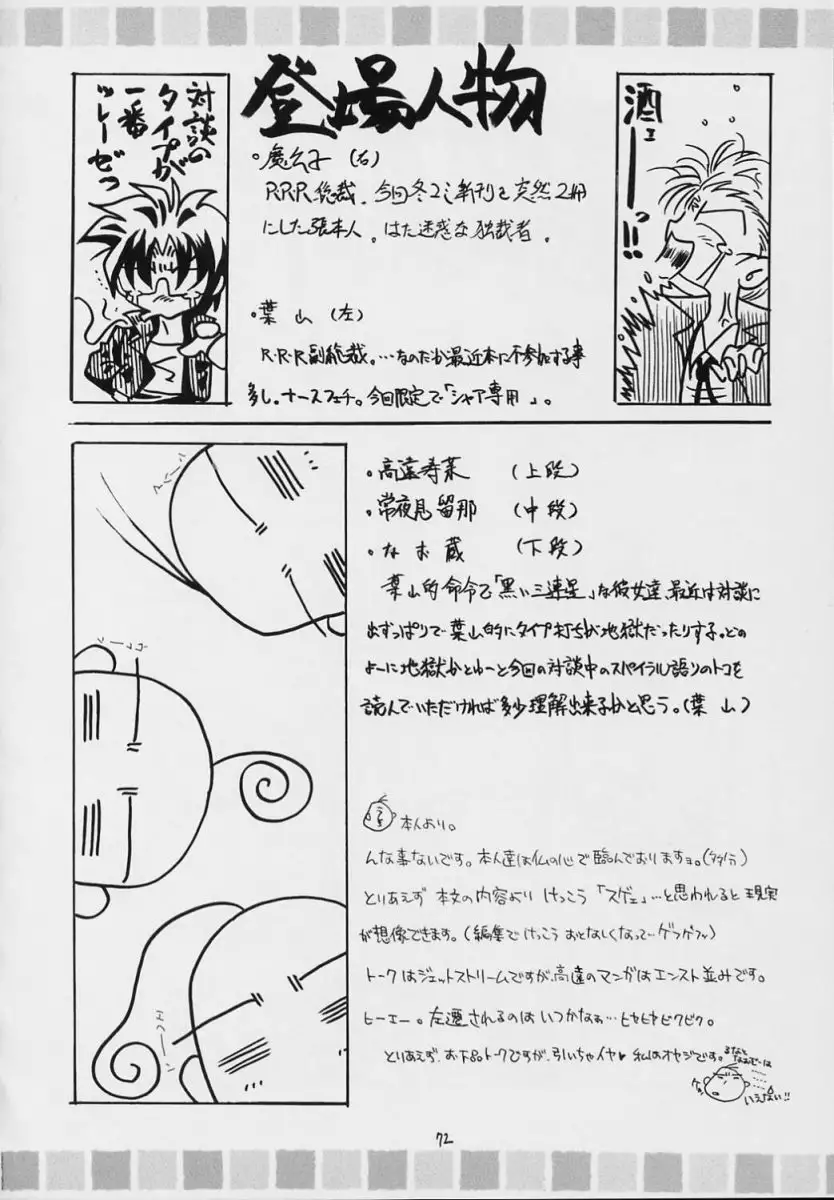 登場人物
酒ェーーっ!!
対談の
タイプが
一番
ツレーぜっ
・魔公子（右）
R.R.R総裁。今回冬コミ新刊を突然2冊
にした張本人。はた迷惑な独裁者。
・葉山（左）
R.R.R副総裁。…なのだが最近本に不参加する事
多し。ナースフェチ。今回限定で「シャア専用」。
・高遠寿菜（上段）
・常夜見留那（中段）
・なお蔵（下段）
葉山的命令で「黒い三連星」な彼女達、最近は対談に
出ずっぱりで葉山的にタイプ打ちが地獄だったりする。どの
よーに地獄かとゆーと今回の対談中のスパイラル語りのトコを
読んでいただければ多少理解出来るかと思う。（葉山）
本人より。
んな事ないです。本人達は仏の心で臨んでおりますョ。（多分）
とりあえず 本文の内容より けっこう「スゲェ」…と思われると現実
が想像できます。（編集でけっこう おとなしくなって…ゲフゲフッ）
トークはジェットストリームですが、高遠のマンガはエンスト並みです。
ヒーエー。左遷されるのは いつかなぁ…ヒヤヒヤビクビク。
とりあえず、お下品トークですが、引いちゃイヤ♥ 私はオヤジです。
いえない!!
72